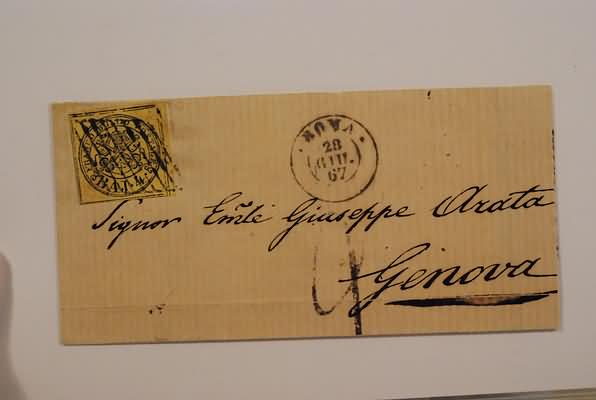 ROMA
28
GIU.
67
Signor Emle Giuseppe Arata
Genova